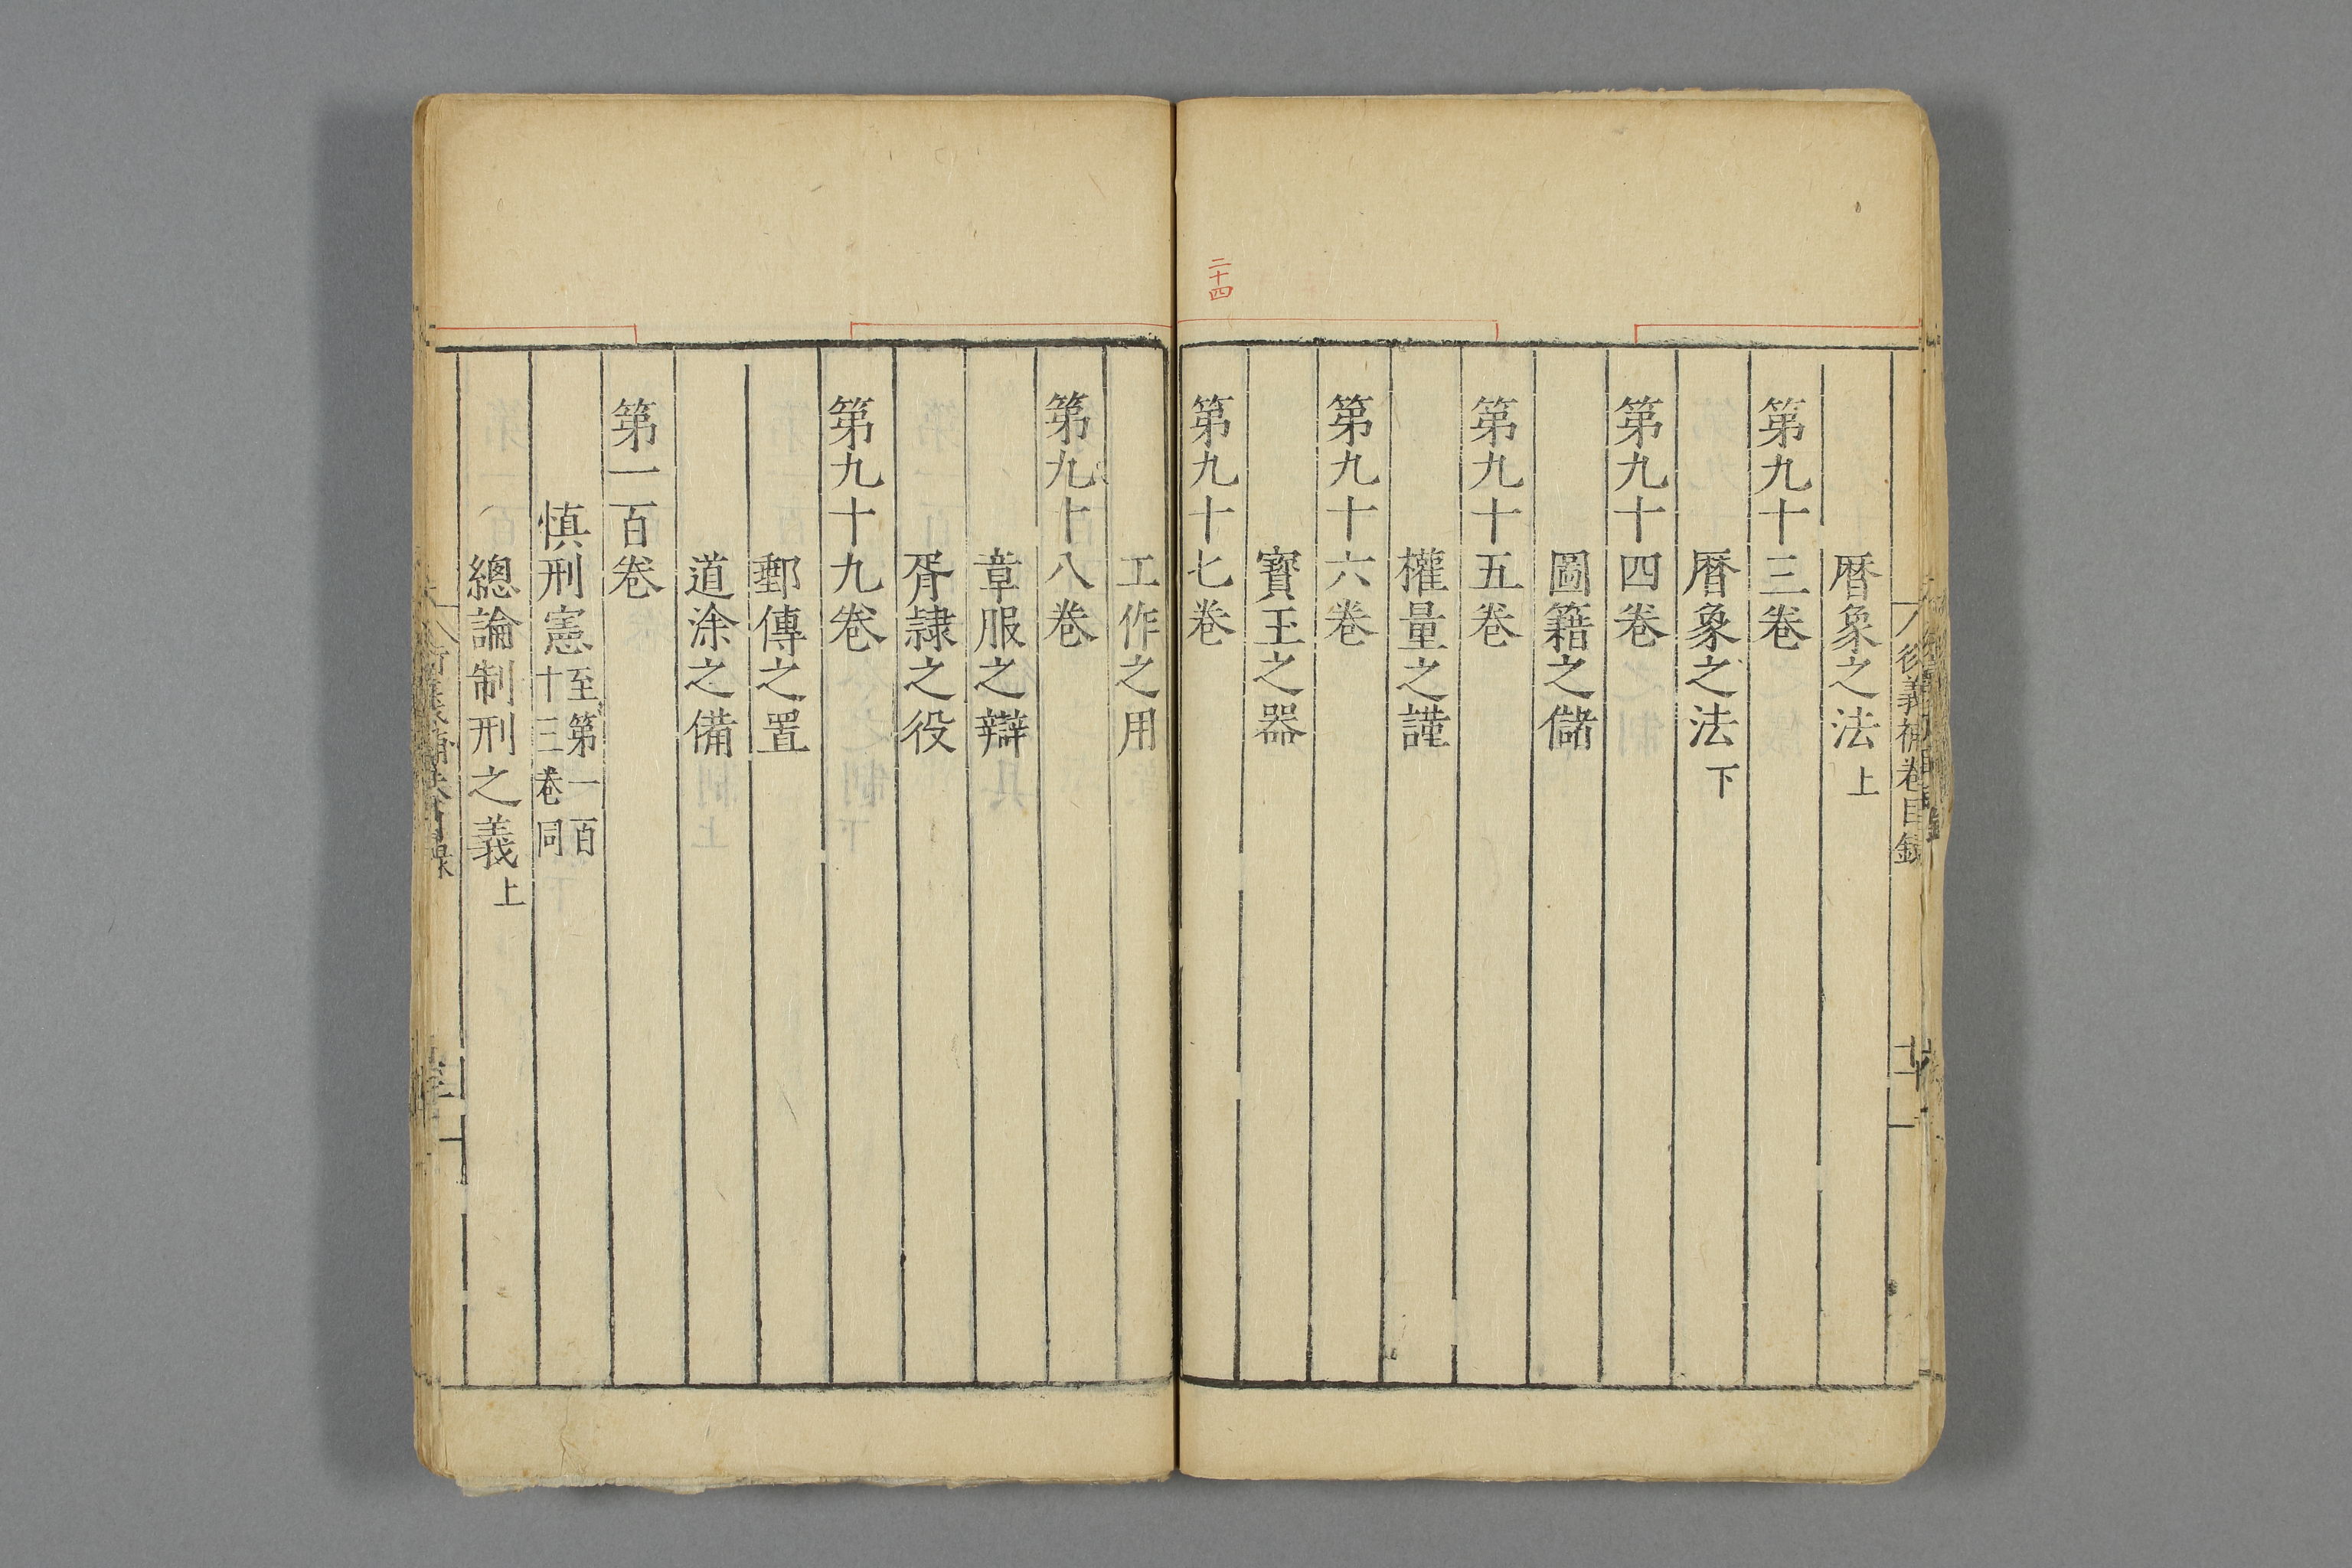 曆象之法上
第九十三卷
曆象之法下
第九十四卷
圖籍之儲
第九十五卷
權量之謹
第九十六卷
寳玉之器
第九十七卷
二十四
工作之用
第九十八卷
章服之辯
胥隷之役
第九十九卷
郵傳之置
道涂之備
第一百卷
慎刑憲至第一百十三卷同
總論制刑之義上